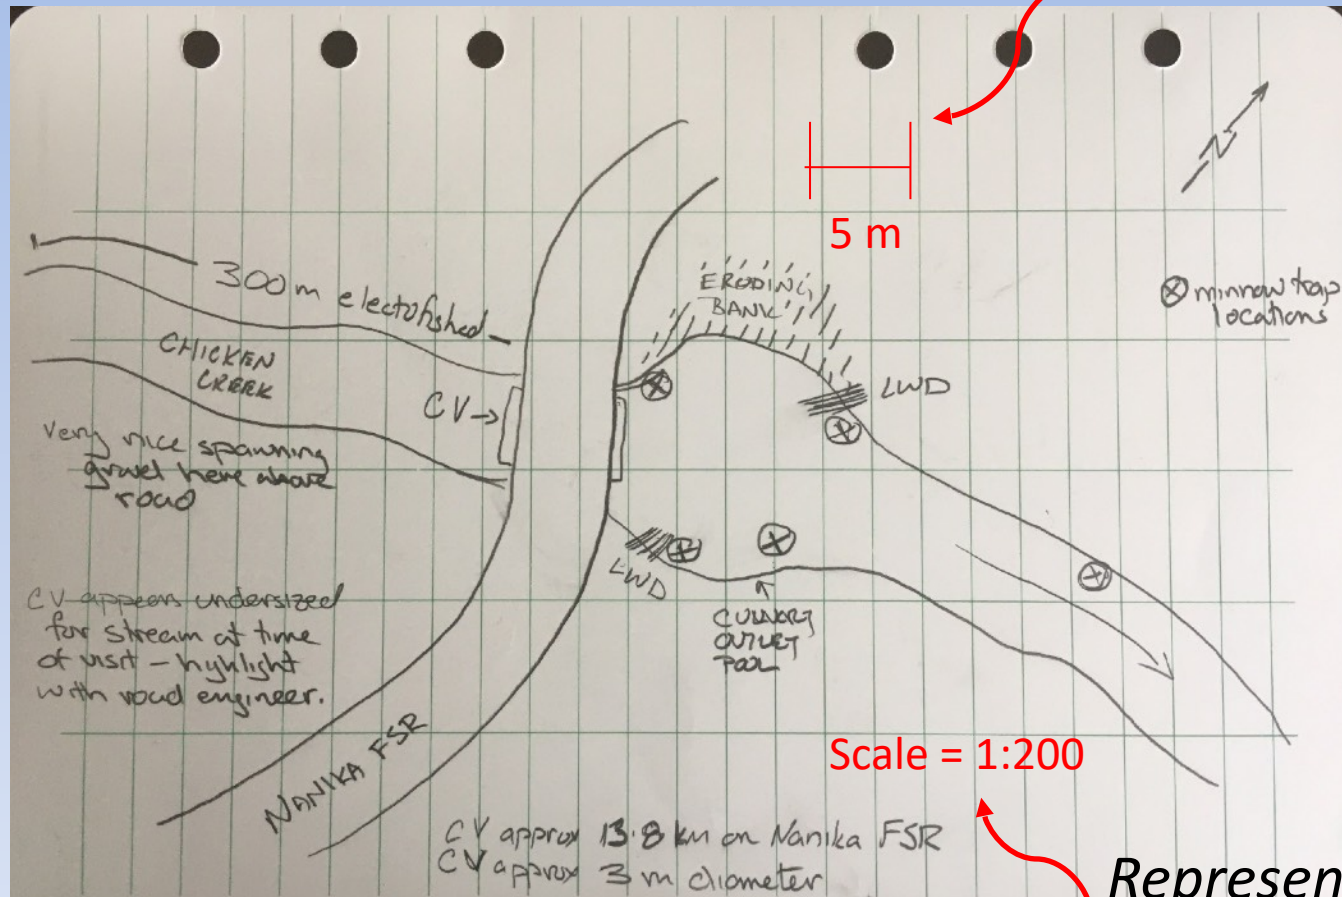 N
5 m
ERODING
BANK
⊗ minnow trap
locations
300m electofished
CHICKEN
CREEK
CV→
LWD
very nice spawning
gravel here above
road
LWD
CULVERT
OUTLET
POOL
CV appears undersized
for stream at time
of visit – highlight
with road engineer.
NANIKA FSR
Scale = 1:200
CV approx 13.8 km on Nanika FSR
CV approx 3 m diameter
Represen